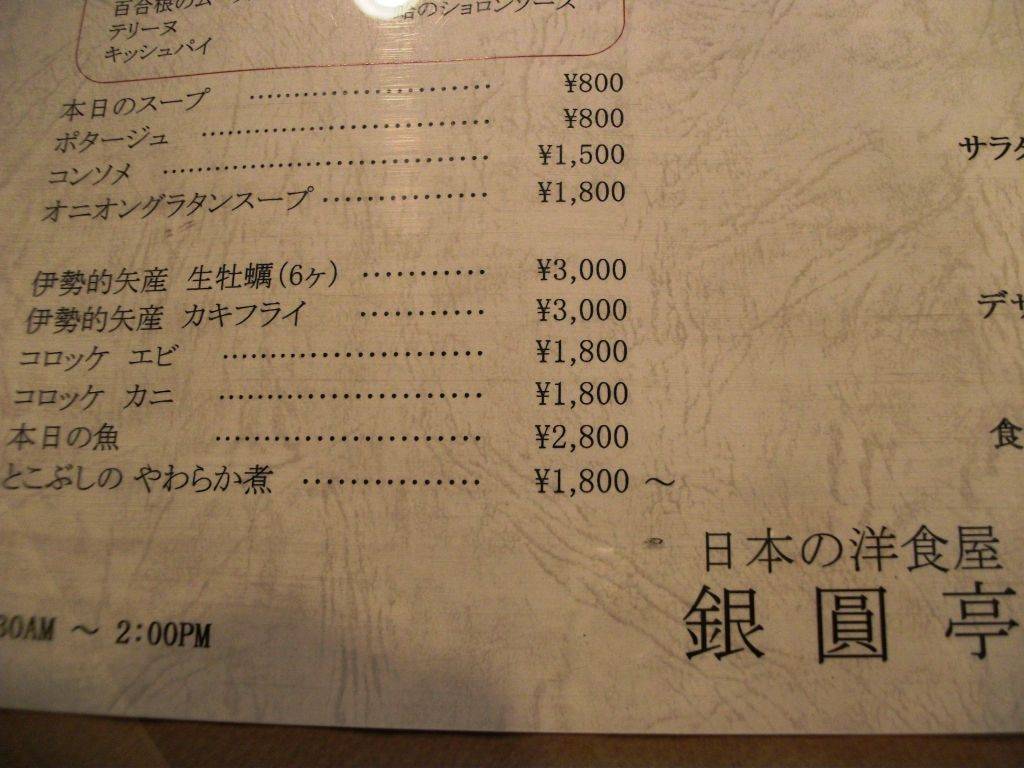 テリーヌ
キッシュパイ
のショロンソース
本日のスープ ························ ¥800
ポタージュ ····························· ¥800
コンソメ ································· ¥1,500
オニオングラタンスープ ·············· ¥1,800
伊勢的矢産 生牡蠣(6ヶ) ··········· ¥3,000
伊勢的矢産 カキフライ ··········· ¥3,000
コロッケ エビ ························ ¥1,800
コロッケ カニ ························ ¥1,800
本日の魚 ························ ¥2,800
とこぶしの やわらか煮 ··············· ¥1,800 ～
サラ
デ
食
日本の洋食屋
銀圓亭
30AM ～ 2:00PM